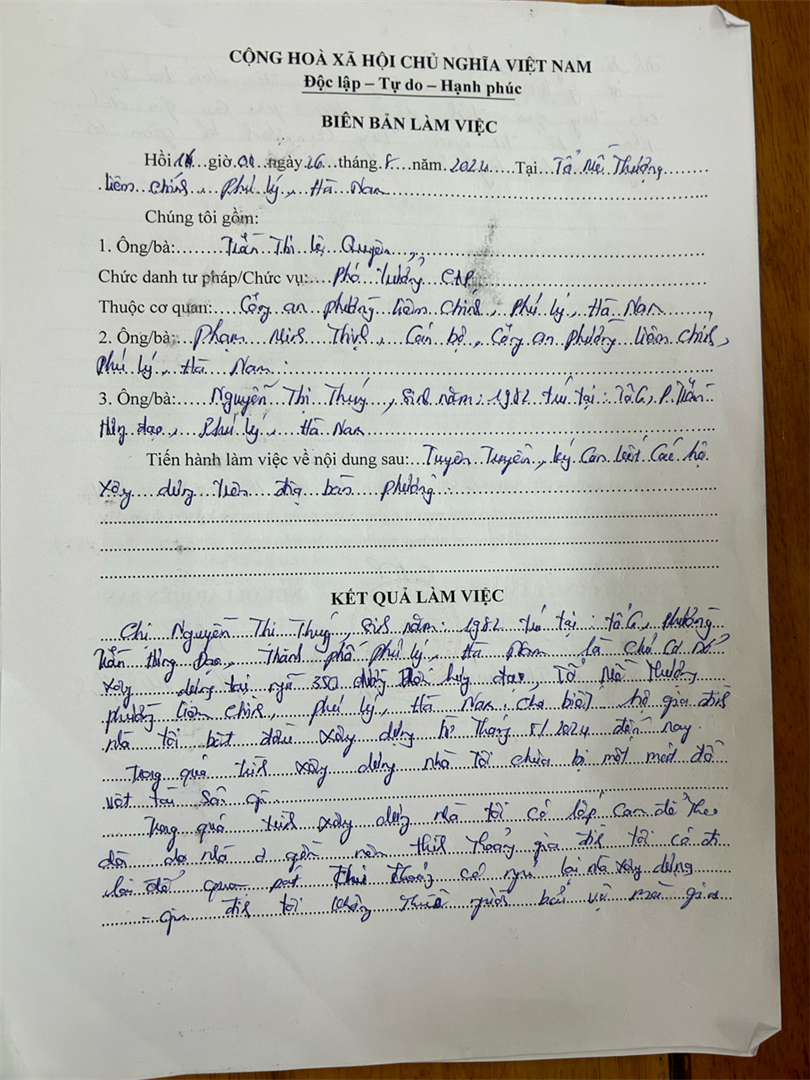 CỘNG HOÀ XÃ HỘI CHỦ NGHĨA VIỆT NAM
Độc lập – Tự do – Hạnh phúc
BIÊN BẢN LÀM VIỆC
Hồi giờ 00 ngày 26 tháng 8 năm 2024 Tại Tổ Mễ Thượng
Liêm Chính, Phủ Lý, Hà Nam
Chúng tôi gồm:
1. Ông/bà: Trần Thị Lệ Quyên,
Chức danh tư pháp/Chức vụ: Phó trưởng CAP
Thuộc cơ quan: Công an phường Liêm Chính, Phủ Lý, Hà Nam,
2. Ông/bà: Phạm Minh Thịnh, Cán bộ, Công an phường Liêm Chính,
Phủ Lý, Hà Nam.
3. Ông/bà: Nguyễn Thị Thuý, Sinh năm: 1982 trú tại: Tổ 6, P. Trần
Hưng đạo, Phủ Lý, Hà Nam
Tiến hành làm việc về nội dung sau: Tuyên Truyền, ký Cam kết Các hộ
Xây dựng trên địa bàn phường.
KẾT QUẢ LÀM VIỆC
Chị Nguyễn Thị Thuý, Sinh năm: 1982 trú tại: tổ 6, phường
Trần Hưng Đạo, Thành phố Phủ Lý, Hà Nam là Chủ Cơ sở
Xây dựng tại ngõ 350 đường Trần hưng đạo, Tổ Mễ Thượng
phường Liêm Chính, phủ Lý, Hà Nam. Cho biết hộ gia đình
nhà tôi bắt đầu xây dựng từ Tháng 5/2024 đến nay.
Trong quá trình xây dựng nhà Tôi chưa bị mất mát đồ
vật tài sản gì.
Trong quá trình xây dựng nhà tôi có lắp Cam để Theo
dõi do nhà ở gần nên thỉnh Thoảng gia đình tôi có đi
lại để quan sát Thỉnh Thoảng có ngủ lại nhà xây dựng
- gia đình tôi không Thuê người bảo vệ mà gia